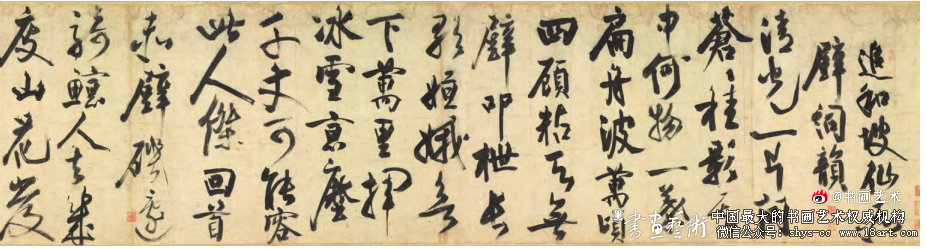 追和坡仙赤
壁詞韻
清光一片問
蒼〻桂影其
中何物一葉
扁舟波萬頃
四顧粘天無
壁叩枻長
歌姮娥欲
下萬里揮
冰雪京塵
千丈可能容
此人傑回首
赤壁磯邊
騎鯨人去幾
度山花發
@书画艺术
書畫藝術
中国最大的书画艺术权威机构
微信公众号: shys-cc www.18art.com